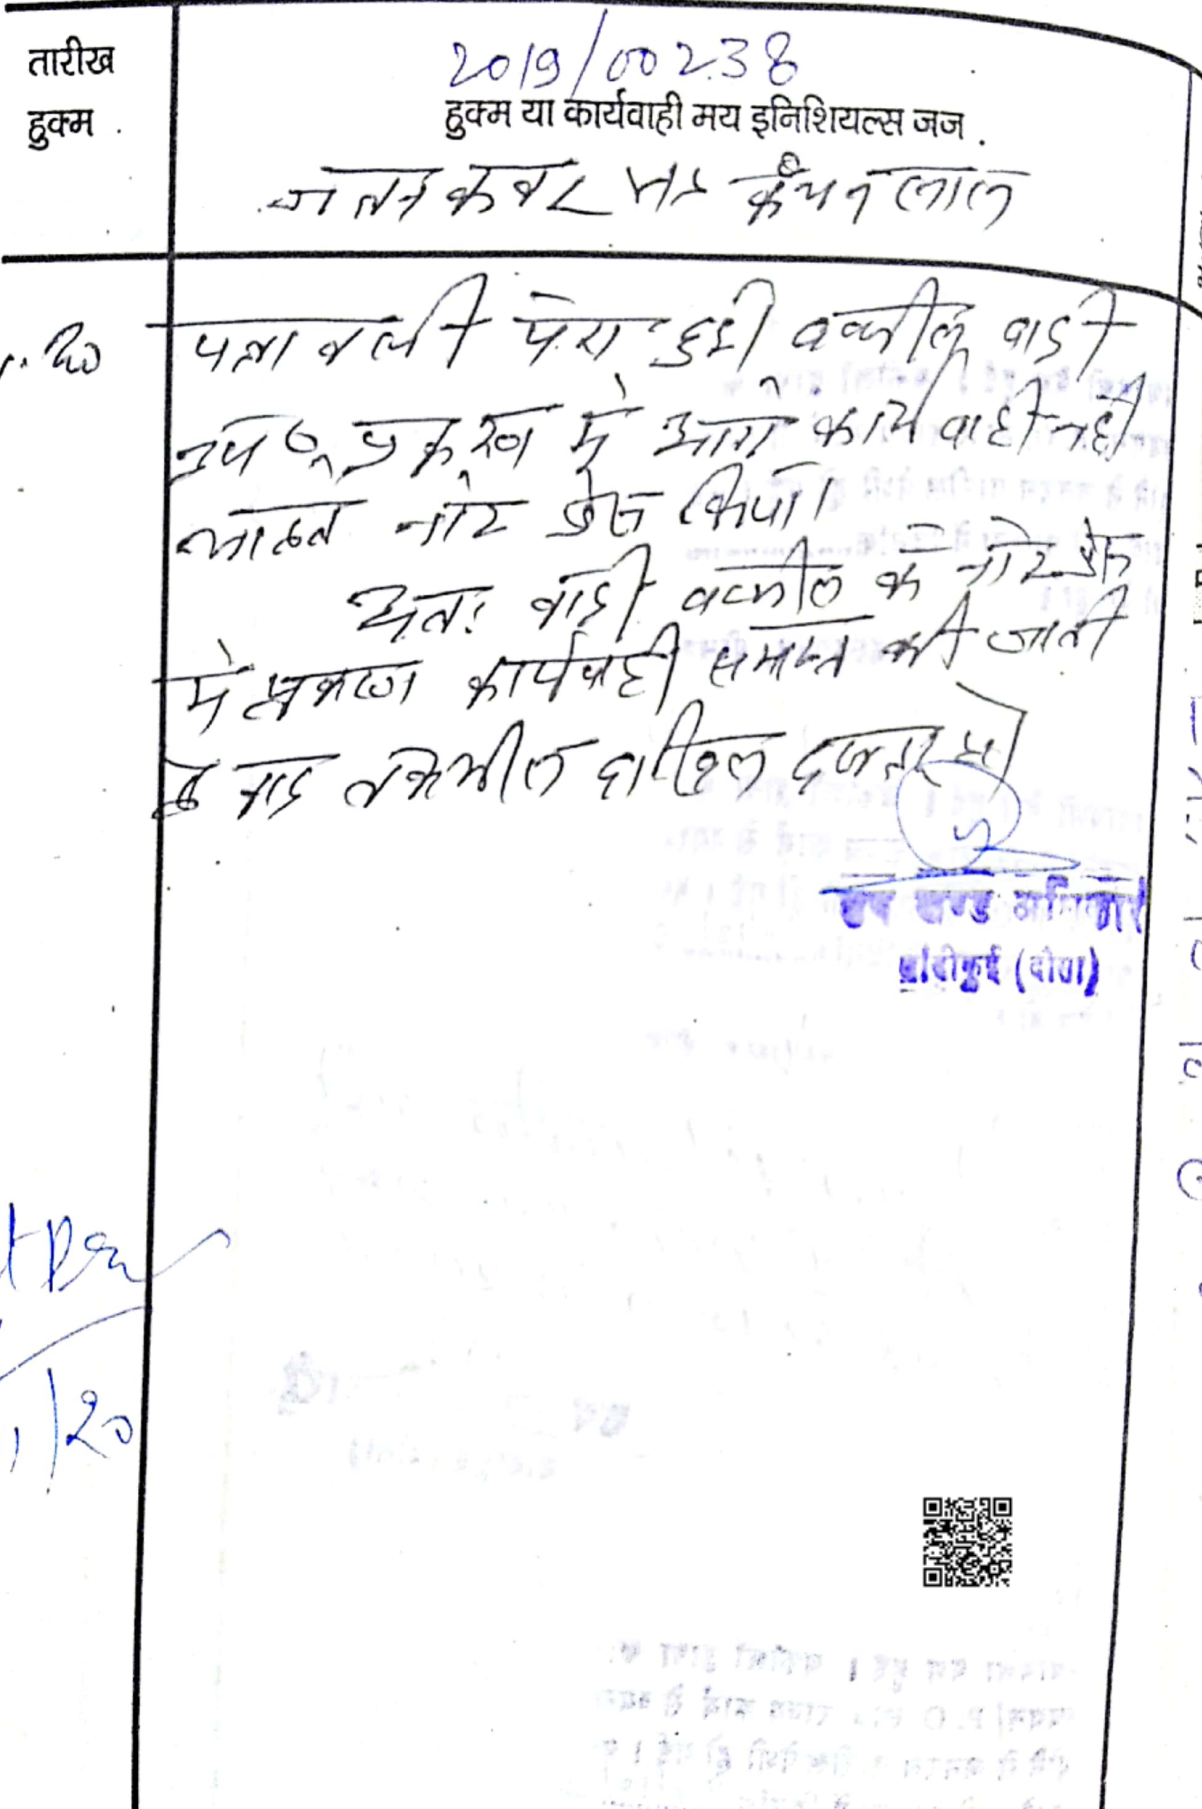 2019/00238
तारीख
हुक्म
हुक्म या कार्यवाही मय इनिशियल्स जज
कंचन लाल
20 पत्रावली पेश हुई वकील वादी
उप0 प्रकरण में आगे कार्यवाही नहीं
चाहते नोट प्रेस किया।
अतः वादी वकील के नोट प्रेस
में प्रकरण कार्यवाही समाप्त की जाती
है बाद तकमील दाखिल दफ्तर हो
उप खण्ड अधिकारी
बांदीकुई (दौसा)
1/20